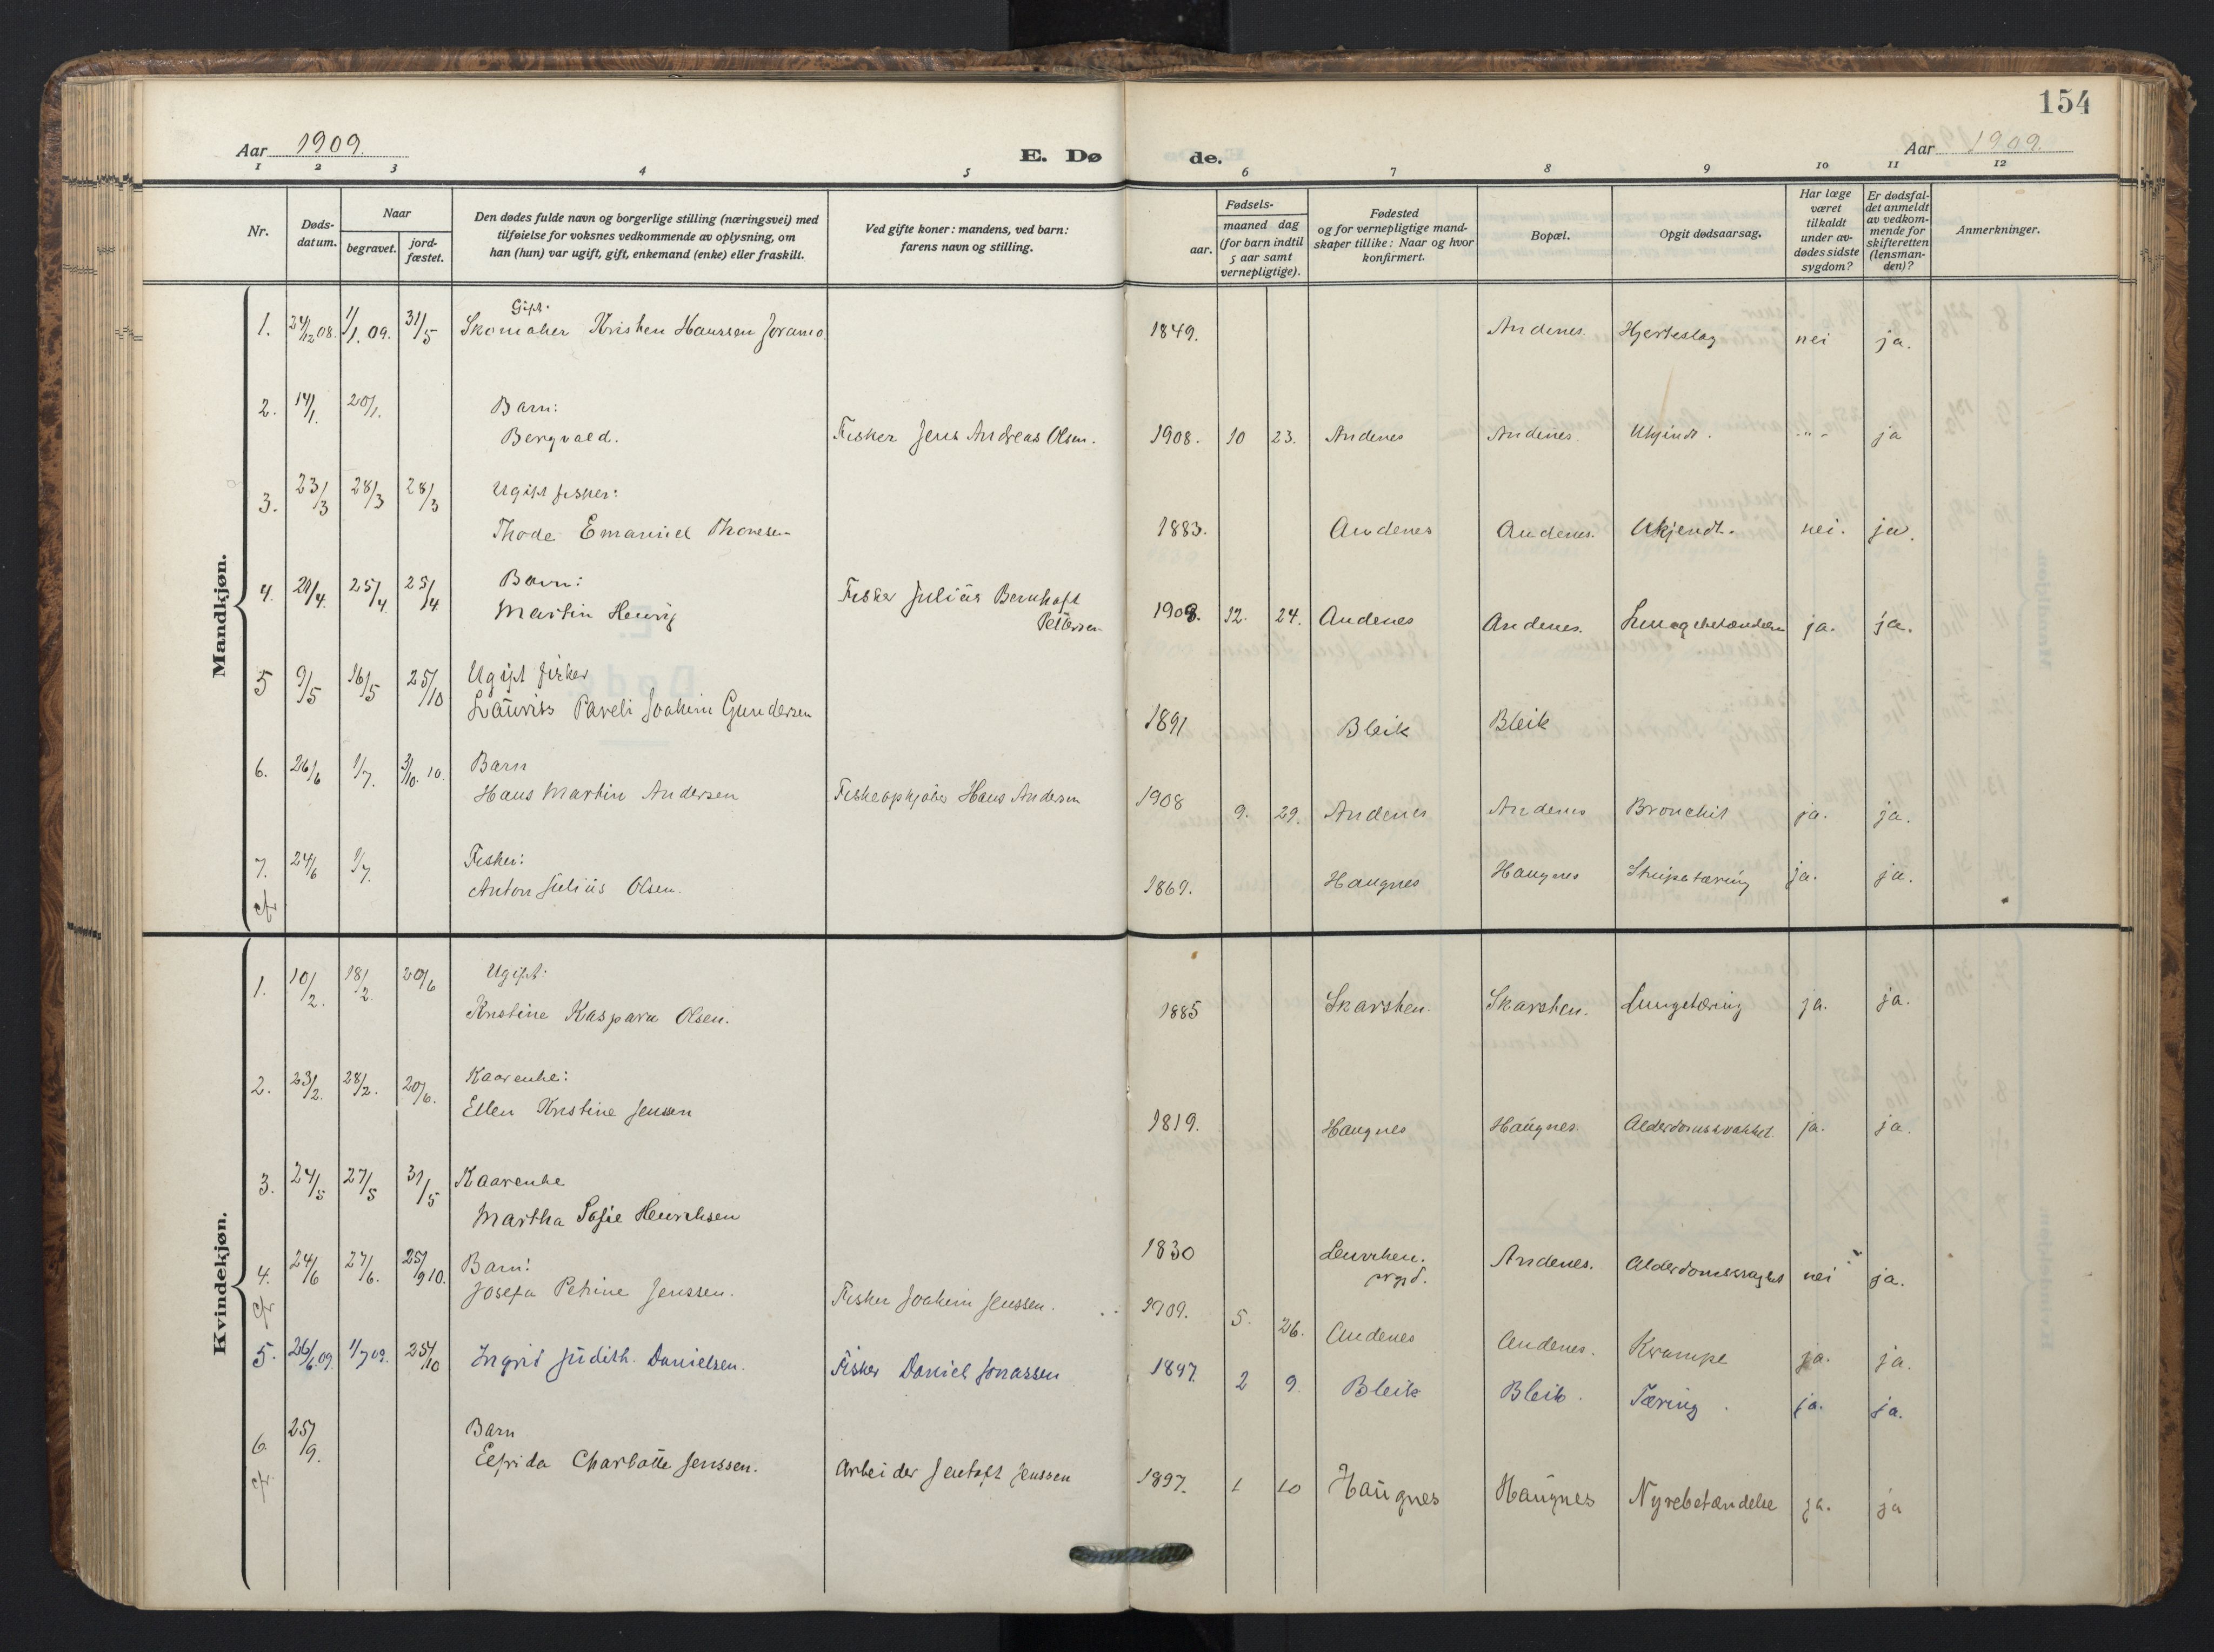 154
Aar 1909.
E. Dø
de.
Aar 1909.
1 2 3 4 5 6 7 8 9 10 11 12
Nr.
Døds-
datum.
Naar
begravet.
jord-
fæstet.
Den dødes fulde navn og borgerlige stilling (næringsvei) med
tilføielse for voksnes vedkommende av oplysning, om
han (hun) var ugift, gift, enkemand (enke) eller fraskilt.
Ved gifte koner: mandens, ved barn:
farens navn og stilling.
Fødsels-
aar.
maaned dag
(for barn indtil
5 aar samt
vernepligtige).
Fødested
og for vernepligtige mand-
skaper tillike: Naar og hvor
konfirmert.
Bopæl.
Opgit dødsaarsag.
Har læge
været
tilkaldt
under av-
dødes sidste
sygdom?
Er dødsfal-
det anmeldt
av vedkom-
mende for
skifteretten
(lensman-
den)?
Anmerkninger.
Mandkjøn.
Gift.
1. 24/12 08. 1/1. 09. 31/5 Skomaker Kristen Hanssen 1849. Andenes. Hjerteslag nei ja.
Barn:
2. 14/1. 20/1. Bergvald. Fisker Jens Andreas Olsen. 1908. 10 23. Andenes Andenes. Ukjendt. -"- ja
Ugift fisker:
3. 23/3 28/3 28/3 Thode Emanuel Thoresen 1883. Andenes Andenes. Ukjendt. nei. ja.
Barn:
4. 25/4 25/4 Martin Henrig Fisker Julius Bernhoft
Pettersen 1908. 12. 24. Andenes Andenes. Lungebetændelse ja. ja.
Ugift fisker
5 9/5 16/5 25/10 Laurits Pareli Joakim Gundersen 1891 Bleik Bleik
Barn
6. 26/6 1/7. 3/10. 10. Hans Martin Andersen Fiskeopkjøber Hans Andersen 1908 9. 29. Andenes Andenes Bronchit ja. ja.
Fisker:
7. 24/6 1/7. Anton Julius Olsen. 1869. Haugnes Haugnes Strupetæring ja. ja.
cfr
Kvindekjøn.
Ugift:
1. 10/2. 18/2. 20/6 Kristine Kaspara Olsen. 1885 Skarsten. Skarsten. Lungetæring ja. ja.
Kaarenke:
2. 23/2. 28/2. 20/6. Ellen Kristine Jensen 1819. Haugnes Haugnes. Alderdomssvakhet. ja. ja.
Kaarenke
3. 24/5 27/5 31/5 Martha Sofie Henriksen 1830 prgd. Andenes. nei ja.
Barn:
4. 24/6 27/6. 25/9 10. Josefa Petrine Jenssen. Fisker Joakim Jenssen. 1909. 5. 26. Andenes Andenes. Krampe ja. ja.
cfr
5. 26/6.09. 1/7 09. 25/10 Ingrid Judith Danielsen. Fisker Daniel Jonassen 1897. 2 9. Bleik Bleik. Tæring. ja. ja.
Barn
6. 25/9. Elfrida Charlotte Jenssen. Arbeider Jentoft Jenssen 1897. 1 10 Haugnes Haugnes Nyrebetændelse ja. ja
cfr.